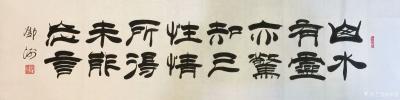 山水
有靈
亦驚
知己
性情
所得
未能
忘言